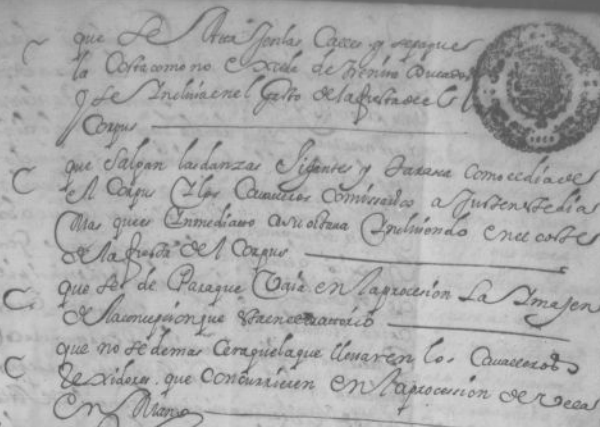 que se en las Calles y se pague
la Costa como no exceda de treinta Ducados
y se Incluia en el Gasto de la fiesta de el
Corpus
que salgan las danzas Gigantes y tarasca como el dia de
el Corpus y los Cavalleros Comissarios a Justen este dia
mas que es Inmediato a su octava Incluiendo en el coste
de la fiesta del Corpus
que se de Para que Vaia en la procesion La Imajen
de la concepcion que esta en el oratorio
que no se de mas Cera que la que llevaren los Cavalleros
Rexidores que concurrieren en la procession de
en Mano